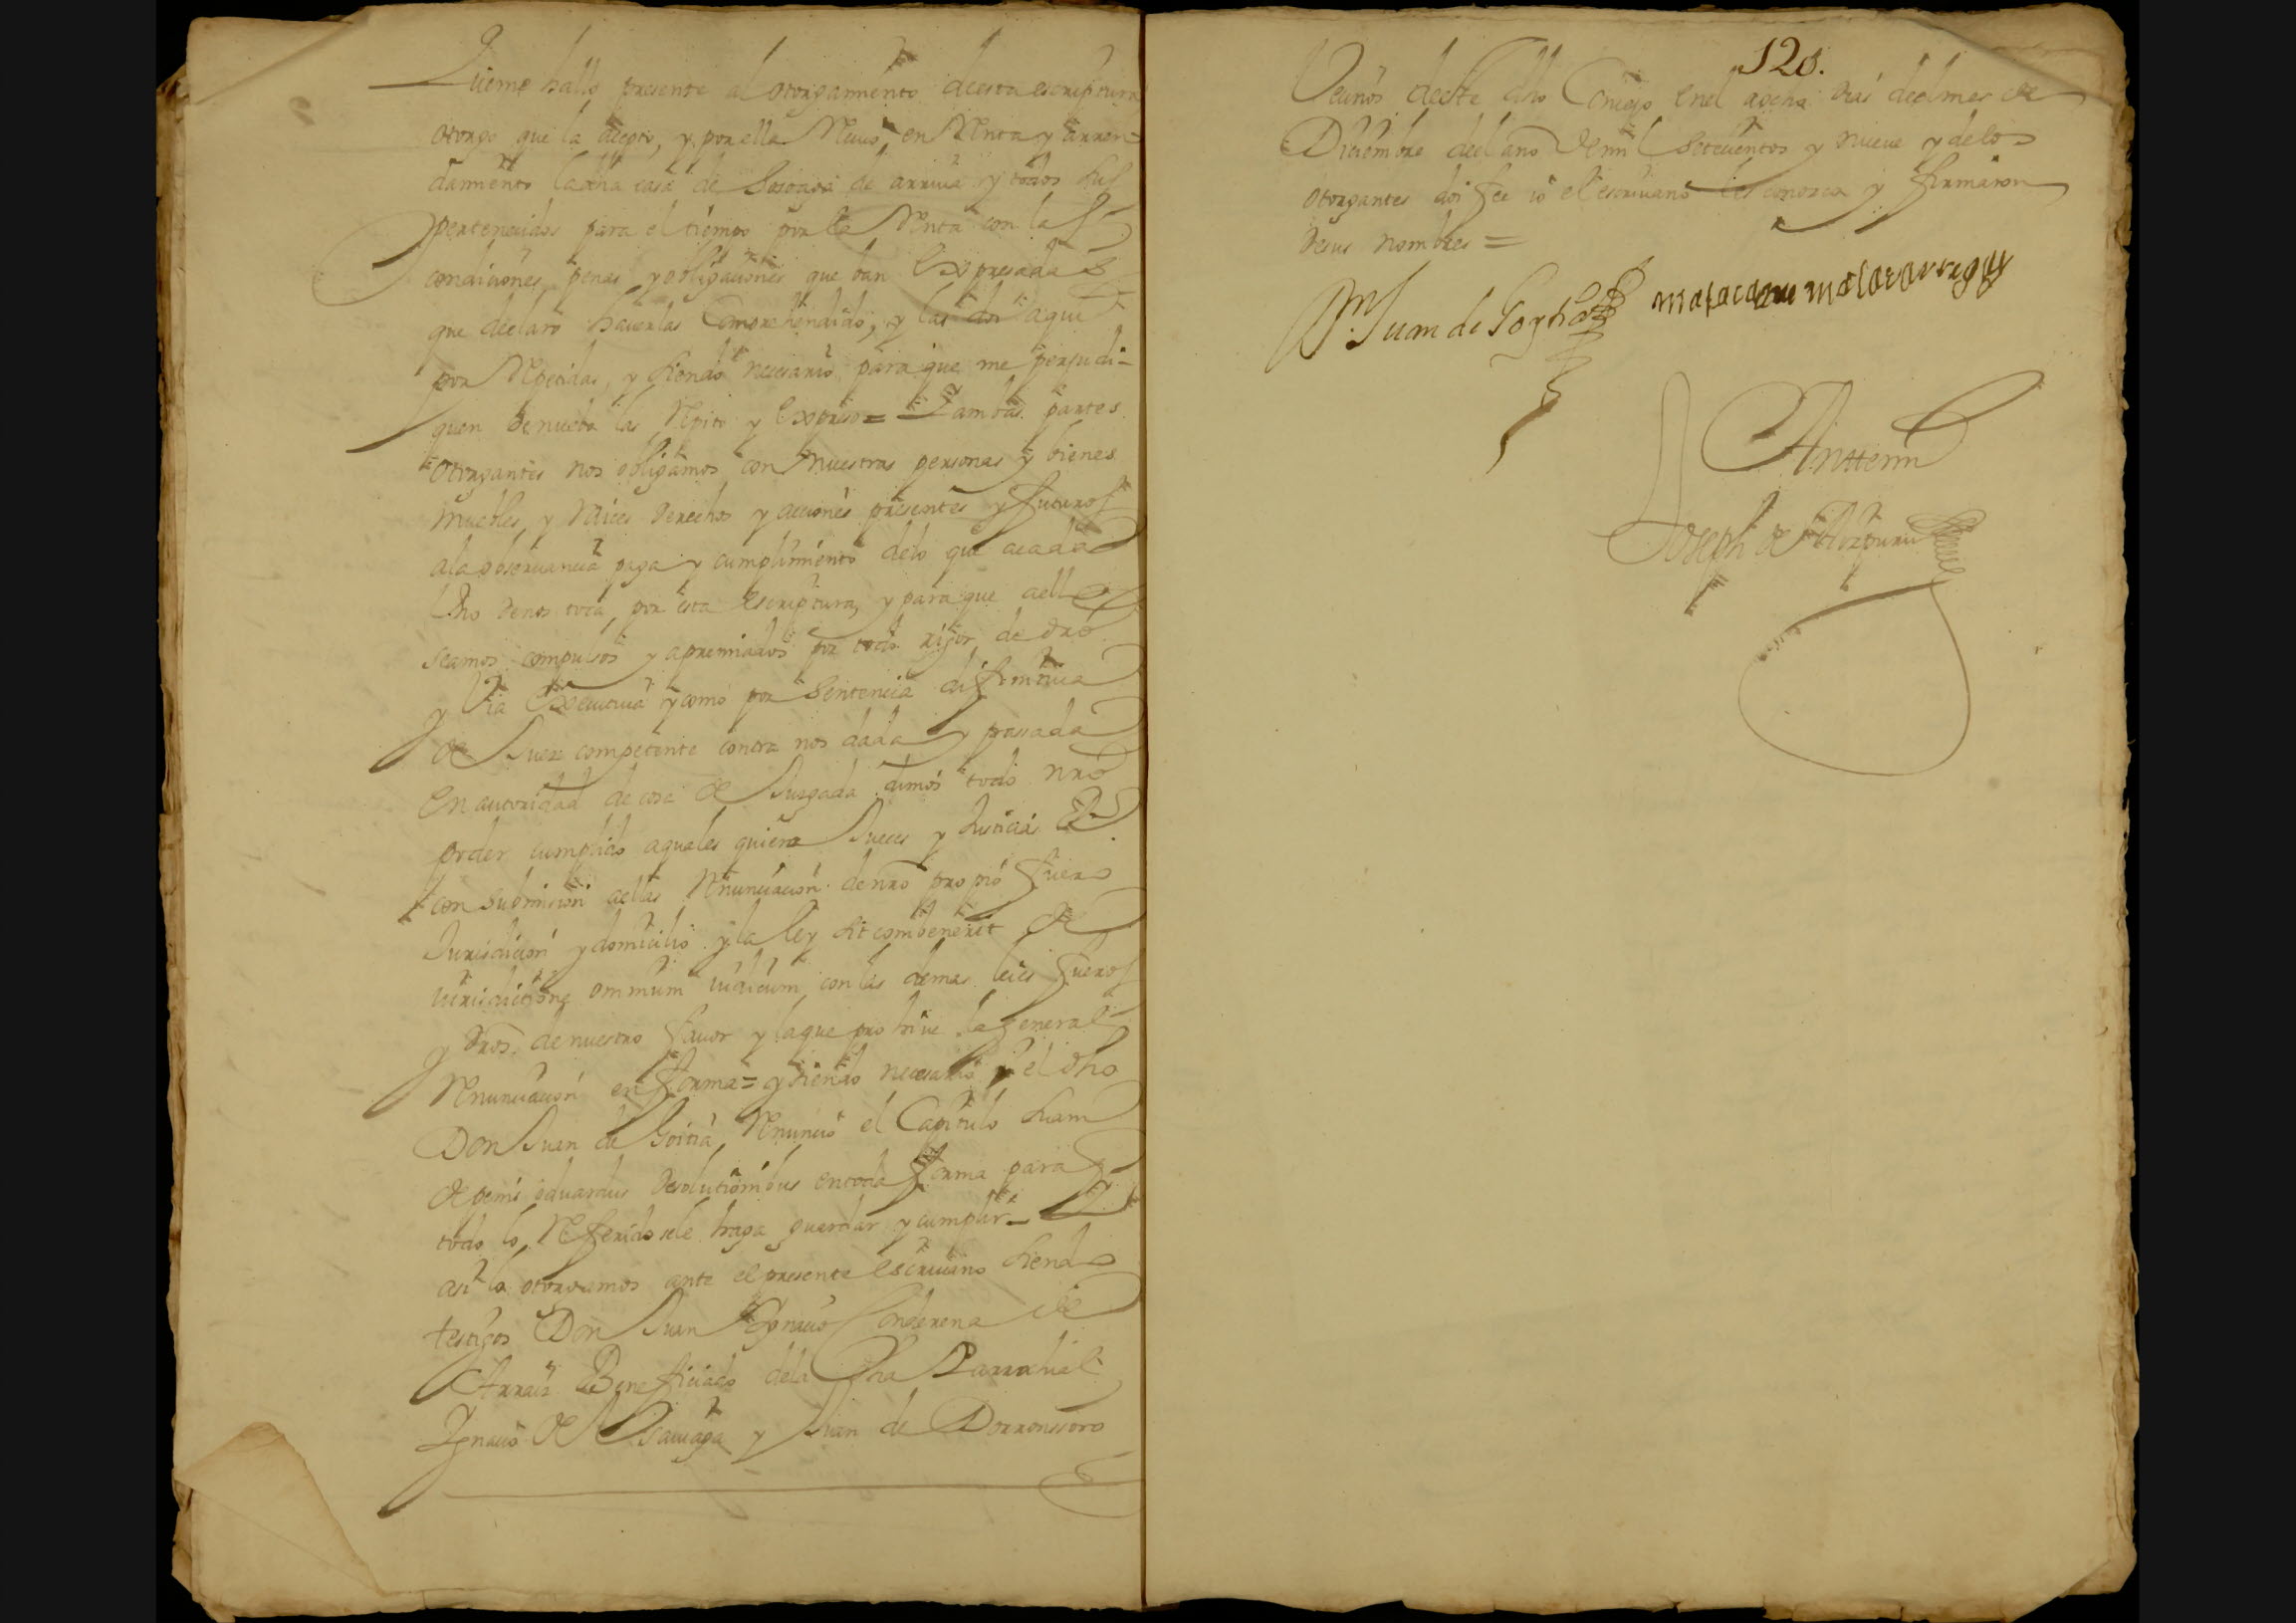 Que me hallo presente al otorgamiento de esta escriptura
otorgo que la acepto, y por ella Reciuo, en Renta y arren-
damiento la dha casa de de arriua y todos sus
pertenecidos para el tiempo por la Renta con las
condiciones penas y obligaciones que ban Expresadas
que declaro hauerlas Comprehendido, y las doi aqui
por Repetidas, y siendo necesario para que me perjudi-
quen de nuebo las Repito y Expreso = Y ambas partes
otorgantes nos obligamos con nuestras personas y bienes
muebles y Raices derechos y acciones presentes y futuros
ala obseruancia paga y cumplimiento delo que acada
Vno de nos toca, por esta escriptura, y para que aello
seamos compulsos y apremiados por todo rigor de dro
y Via Executiua y como por Sentencia difinitiua
de Juez competente contra nos dada y passada
En autoridad de cosa de Juzgada damos todo nro
poder cumplido aquales quiera Jueces y Justicias
con submision aellas Renunciacion de nro propio fuero
Jurisdicion y domicilio y la ley sit combenerit de
iurisdictione omnium iudicum con las demas leies fueros
y dros. de nuestro fauor y la que prohiue la general
Renunciacion en forma = y siendo necesario io el dho
Don Juan de Goitia Renuncio el Capitulo suam
de penis oduardus desolutionibus en toda forma para
todo lo Referido se le haga guardar y cumplir - Y
asi lo otorgamos ante el presente escriuano siendo
testigos Don Juan Ignacio de
Arraiz Beneficiado dela dha Parrochial
Ignacio de y Juan de Dorronssoro
120.
Vecinos de este dho Concejo en el a ocho dias del mes de
Diciembre del año de mil setecientos y nueve y delos
otorgantes doi fee io el escriuano les conozco y firmaron
de sus nombres =
Dn. Juan de Goytia
Anttemi
Joseph de Aizpuru